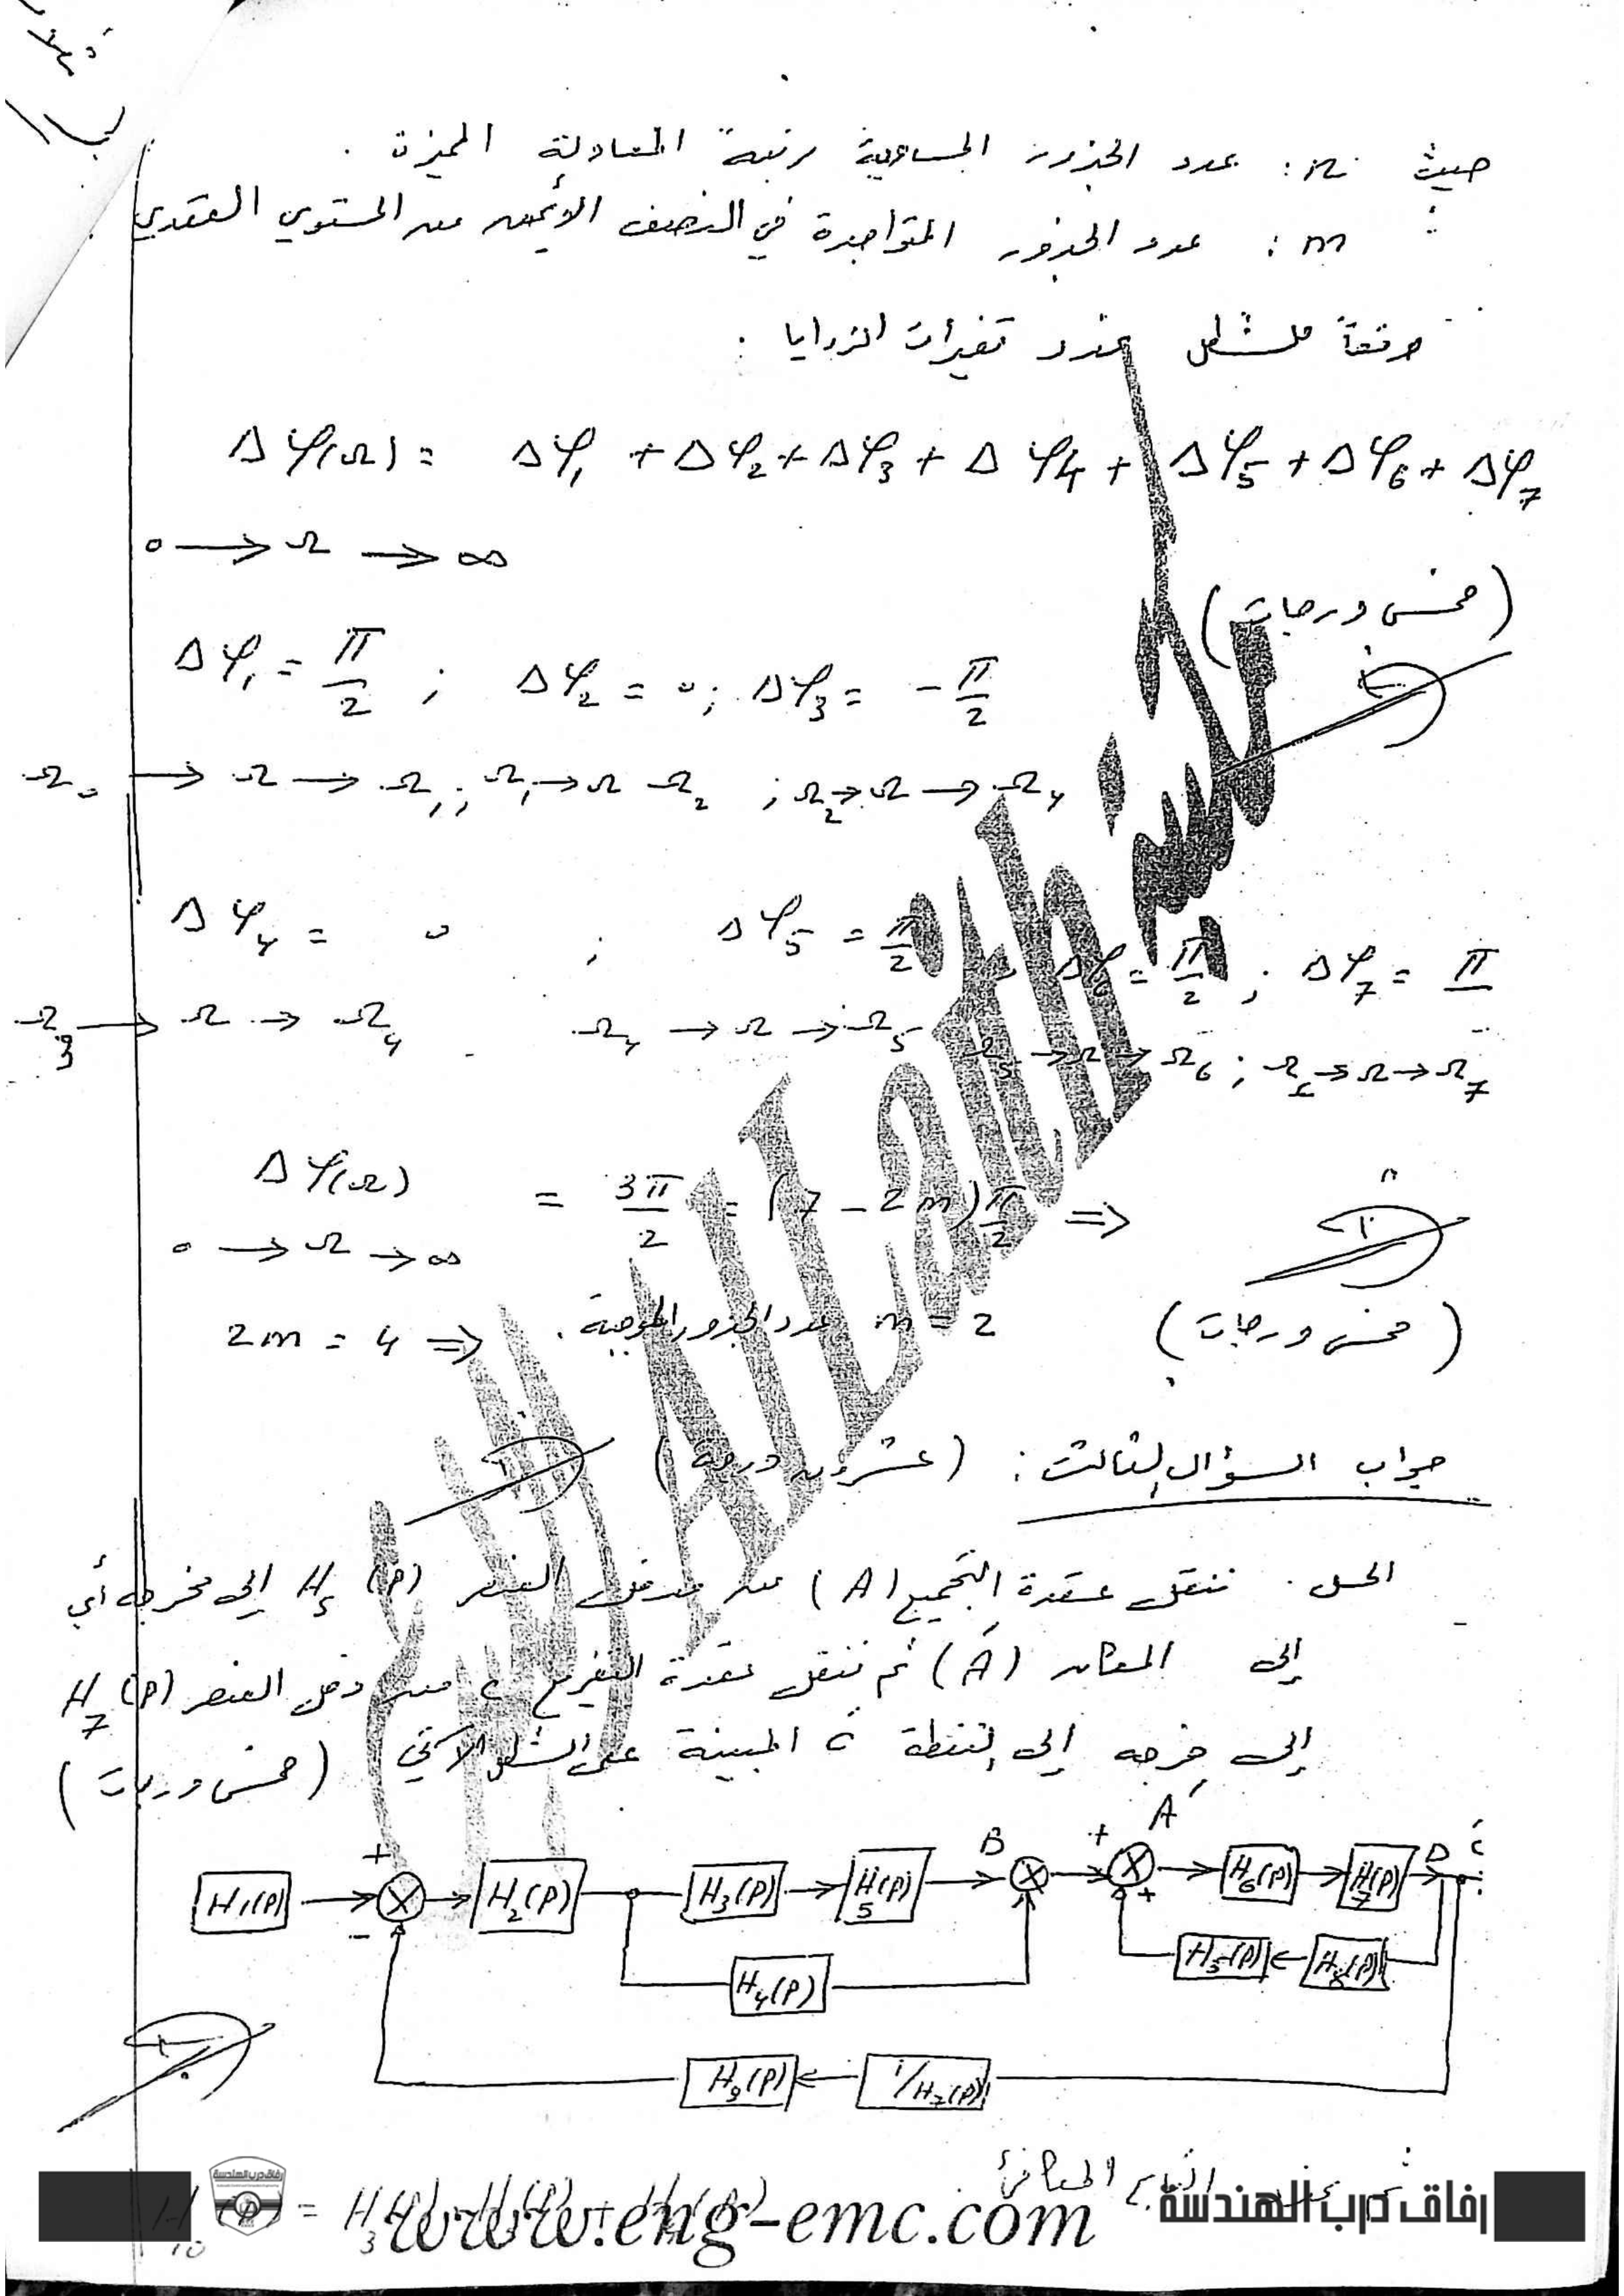 حيث n: عدد الجذور المساوية رتبة المعادلة المميزة.
m: عدد الجذور المتواجدة في النصف الأيمن من المستوي العقدي.
وفقاً للشكل عدد تغيرات الزوايا:
Δφ(Ω) = Δφ1 + Δφ2 + Δφ3 + Δφ4 + Δφ5 + Δφ6 + Δφ7
0 → Ω → ∞
(خمس درجات)
Δφ1 = π/2 ; Δφ2 = 0 ; Δφ3 = -π/2
Ω0 → Ω → Ω1 ; Ω1 → Ω Ω2 ; Ω2 → Ω → Ω4
Δφ4 = 0 ; Δφ5 = π/2 Δφ6 = π/2 ; Δφ7 = π
Ω3 → Ω → Ω4 Ω4 → Ω → Ω5 Ω5 → Ω → Ω6 ; → Ω → Ω7
Δφ(Ω) = 3π/2 = (7 - 2m) π/2 ⇒
0 → Ω → ∞
2m = 4 ⇒ m = 2 عدد الجذور الموجبة.
(خمس درجات)
جواب السؤال الثالث: (عشرون درجة)
الحل. ننقل عقدة التجميع (A) من مدخل العنصر H5(P) إلى مخرجه أي
إلى المكان (A') ثم ننقل عقدة التفريع C من دخل العنصر H7(P)
إلى خرجه إلى النقطة C' المبينة على الشكل الآتي (خمس درجات)
A'
B + D C'
+
H1(P) H2(P) H3(P) H5(P) H6(P) H7(P)
- +
H5(P) H8(P)
H4(P)
H9(P) 1/H7(P)
ثم نجد التابع المكافئ
www.eng-emc.com
رفاق درب الهندسة
ALLaith